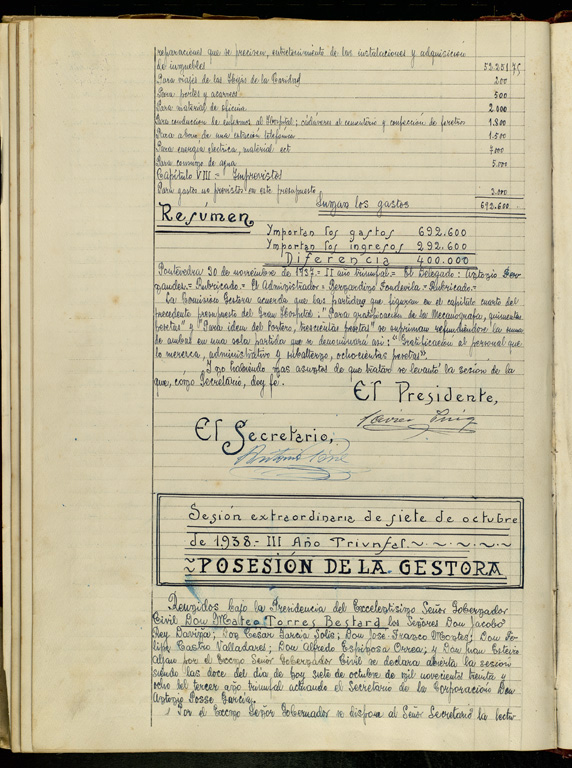 reparaciones que se precisen, entretenimiento de las instalaciones y adquisición
de inmuebles 52.251,75
Para viajes de las Hijas de la Caridad 200
Para portes y acarreos 500
Para material de oficina 2.000
Para conducción de enfermos al Hospital; cadáveres al cementerio y confección de feretros 1.800
Para abono de una estación telefónica 1.500
Para energía electrica, material ect 7.000
Para consumo de agua 5.000
Capítulo VIII = Imprevistos
Para gastos no previstos en este presupuesto 3.000
Suman los gastos 692.600
Resúmen
Ymportan los gastos 692.600
Ymportan los ingresos 292.600
Diferencia 400.000
Pontevedra 30 de noviembre de 1937 = II año triunfal = El Delegado: Antonio
= Rubricado = El Administrador = Bernardino Fondevila = Rubricado =
La Comisión Gestora acuerda que las partidas que figuran en el capítulo cuarto del
precedente presupuesto del Gran Hospital: "Para gratificación de la Mecanógrafa, quinientas
pesetas" y "Para idem del Portero, trescientas pesetas" se supriman refundiendose la suma
de ambas en una sola partida que se denominará así: "Gratificación al personal que
lo merezca, administrativo y subalterno, ochocientas pesetas".
Y no habiendo mas asuntos de que tratar se levantó la sesión de la
que, cómo Secretario, doy fe.
El Presidente,
El Secretario,
Sesión extraordinaria de siete de octubre
de 1938.- III Año Triunfal.
POSESIÓN DE LA GESTORA
Reunidos bajo la Presidencia del Excelentísimo Señor Gobernador
Civil Don Mateo Torres Bestard los Señores Don Jacobo
Rey Daviña; Don César García Solis; Don José Franco Montes; Don Fe-
lipe Castro Valladares; Don Alfredo Espinosa Orrea; y Don Juan Esterio
por el Excmo Señor Gobernador Civil se declara abierta la sesión
siendo las doce del día de hoy siete de octubre de mil novecientos treinta y
ocho del tercer año triunfal actuando el Secretario de la Corporación Don
Antonio Posse García.
Por el Excmo Señor Gobernador se dispone al Señor Secretario la lectu-